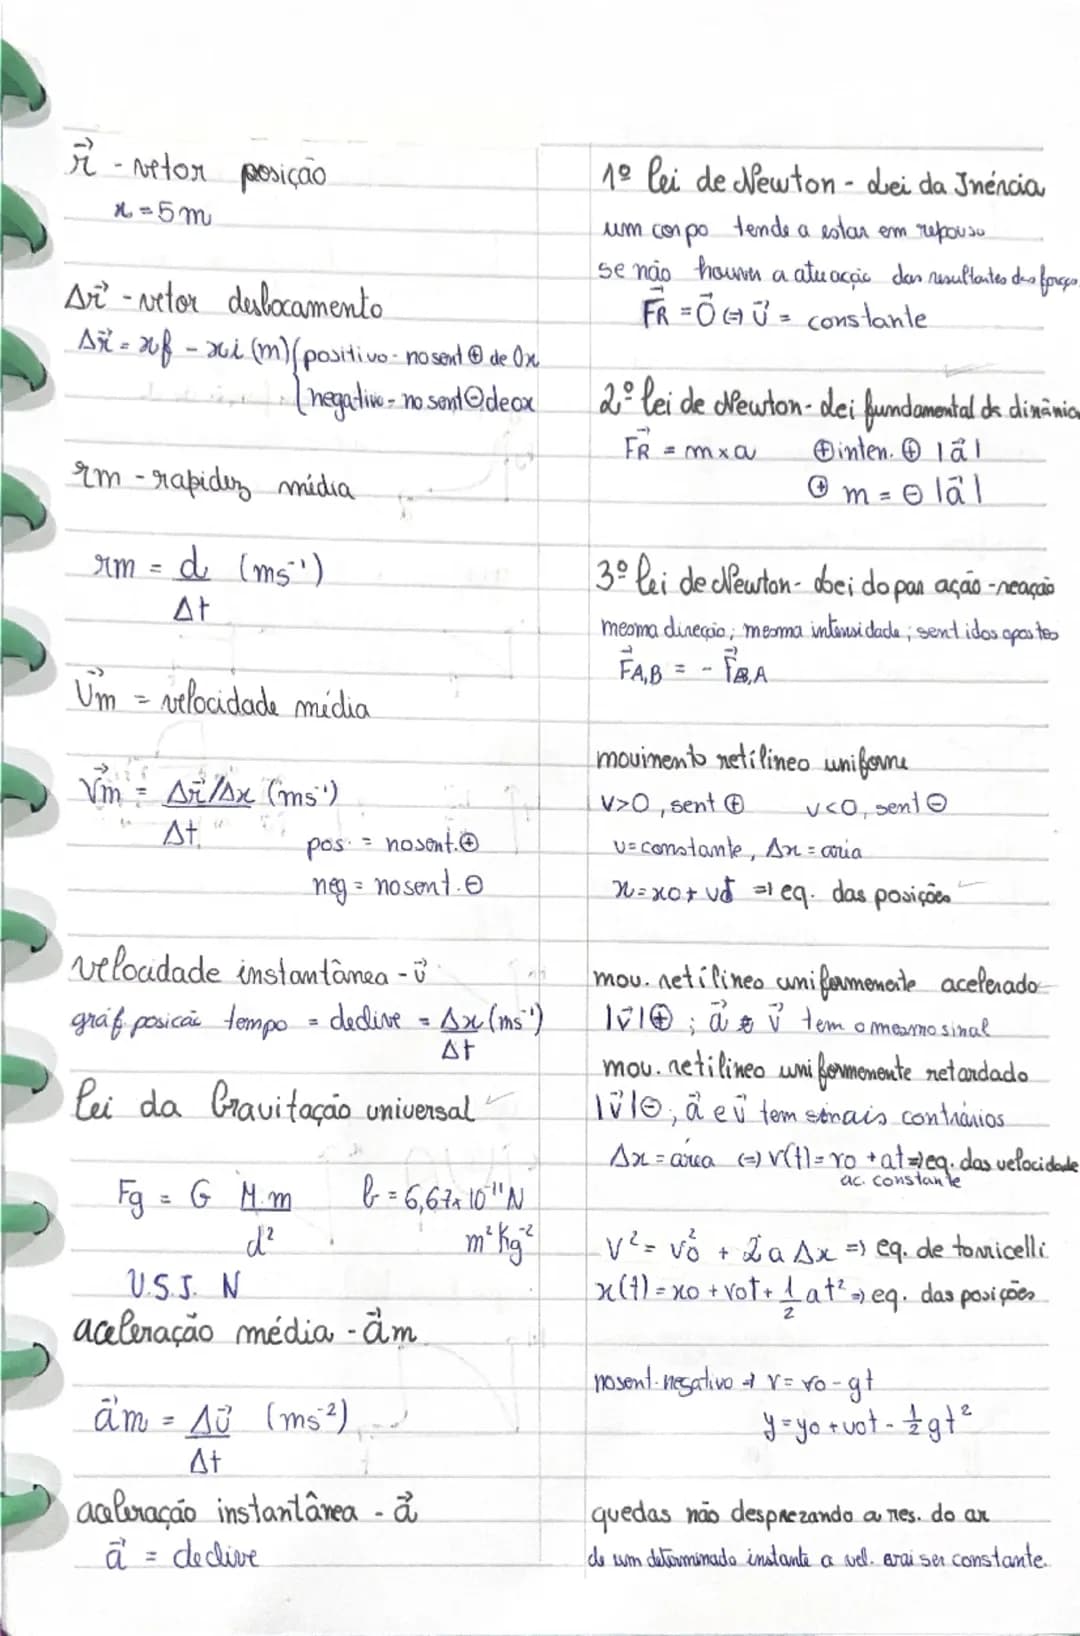 r⃗ - vetor posição
x = 5 m
Δr⃗ - vetor deslocamento
Δx⃗ = xf - xi (m) { positivo - no sent ⊕ de Ox
negativo - no sent ⊖ de ox
rm - rapidez média
rm = d (ms⁻¹)
Δt
v⃗m = velocidade média
v⃗m = Δr⃗/Δx (ms⁻¹)
Δt
pos. = no sent. ⊕
neg = no sent. ⊖
velocidade instantânea - v⃗
gráf. posicão tempo = declive = Δx (ms⁻¹)
Δt
lei da Gravitação universal
Fg = G M.m G = 6,67x10⁻¹¹ N
d² m² Kg⁻²
U.S.I. N
aceleração média - a⃗m
a⃗m = Δv⃗ (ms⁻²)
Δt
aceleração instantânea - a⃗
a⃗ = declive
1º lei de Newton - Lei da Inércia
um corpo tende a estar em repouso
se não houver a atuacção das resultantes das forças
F⃗R = 0⃗ ⇔ v⃗ = constante
2º lei de Newton - Lei fundamental da dinâmica
F⃗R = m x a ⊕ inten. ⊕ |a⃗|
⊕ m = ⊖ |a⃗|
3º lei de Newton - Lei do par ação - reação
mesma direção; mesma intensidade; sentidos opostos
F⃗A,B = - F⃗B,A
movimento retilíneo uniforme
v>0, sent ⊕ v<0, sent ⊖
v = constante, Δx = aria
x = x0 + vt ⇒ eq. das posições
mov. retilíneo uniformemente acelerado
|v⃗| ⊕ ; a⃗ e v⃗ tem o mesmo sinal
mov. retilineo uniformemente retardado
|v⃗| ⊖, a⃗ e v⃗ tem sinais contrários
Δx = área ⇔ v(t) = v0 + at ⇒ eq. das velocidade
ac. constante
v² = v0² + 2 a Δx ⇒ eq. de torricelli
x(t) = x0 + v0t + 1/2 at² ⇒ eq. das posições
no sent. negativo → v = v0 - gt
y = y0 + v0t - 1/2 gt²
quedas não desprezando a res. do ar
de um determinado instante a vel. ser constante.